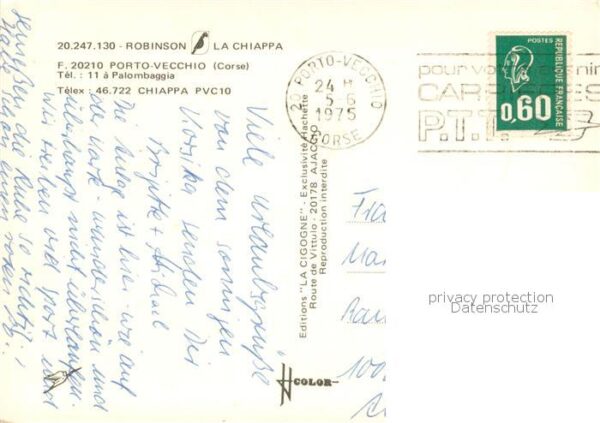 20.247.130 - ROBINSON LA CHIAPPA
F. 20210 PORTO-VECCHIO (Corse)
Tél. : 11 à Palombaggia
Télex : 46.722 CHIAPPA PVC10
Viele Urlaubsgrüße
von dem sonnigen
Korsika senden Dir
Brigitte +
Die Anlage ist hier - wie auf
der Karte - wunderschön und
überhaupt nicht überlaufen.
Wir treiben viel Sport und
genießen die Ruhe so richtig.
Habe schon einen
Editions "LA CIGOGNE" - Exclusivité Hachette
Route de Vittulo - 20178 AJACCIO
Reproduction interdite
COLOR
20 PORTO-VECCHIO
24 H
5-6
1975
CORSE
pour vo
CARRIERES
P.T.T.
POSTES
REPUBLIQUE FRANCAISE
0,60
Ma
100
privacy protection
Datenschutz